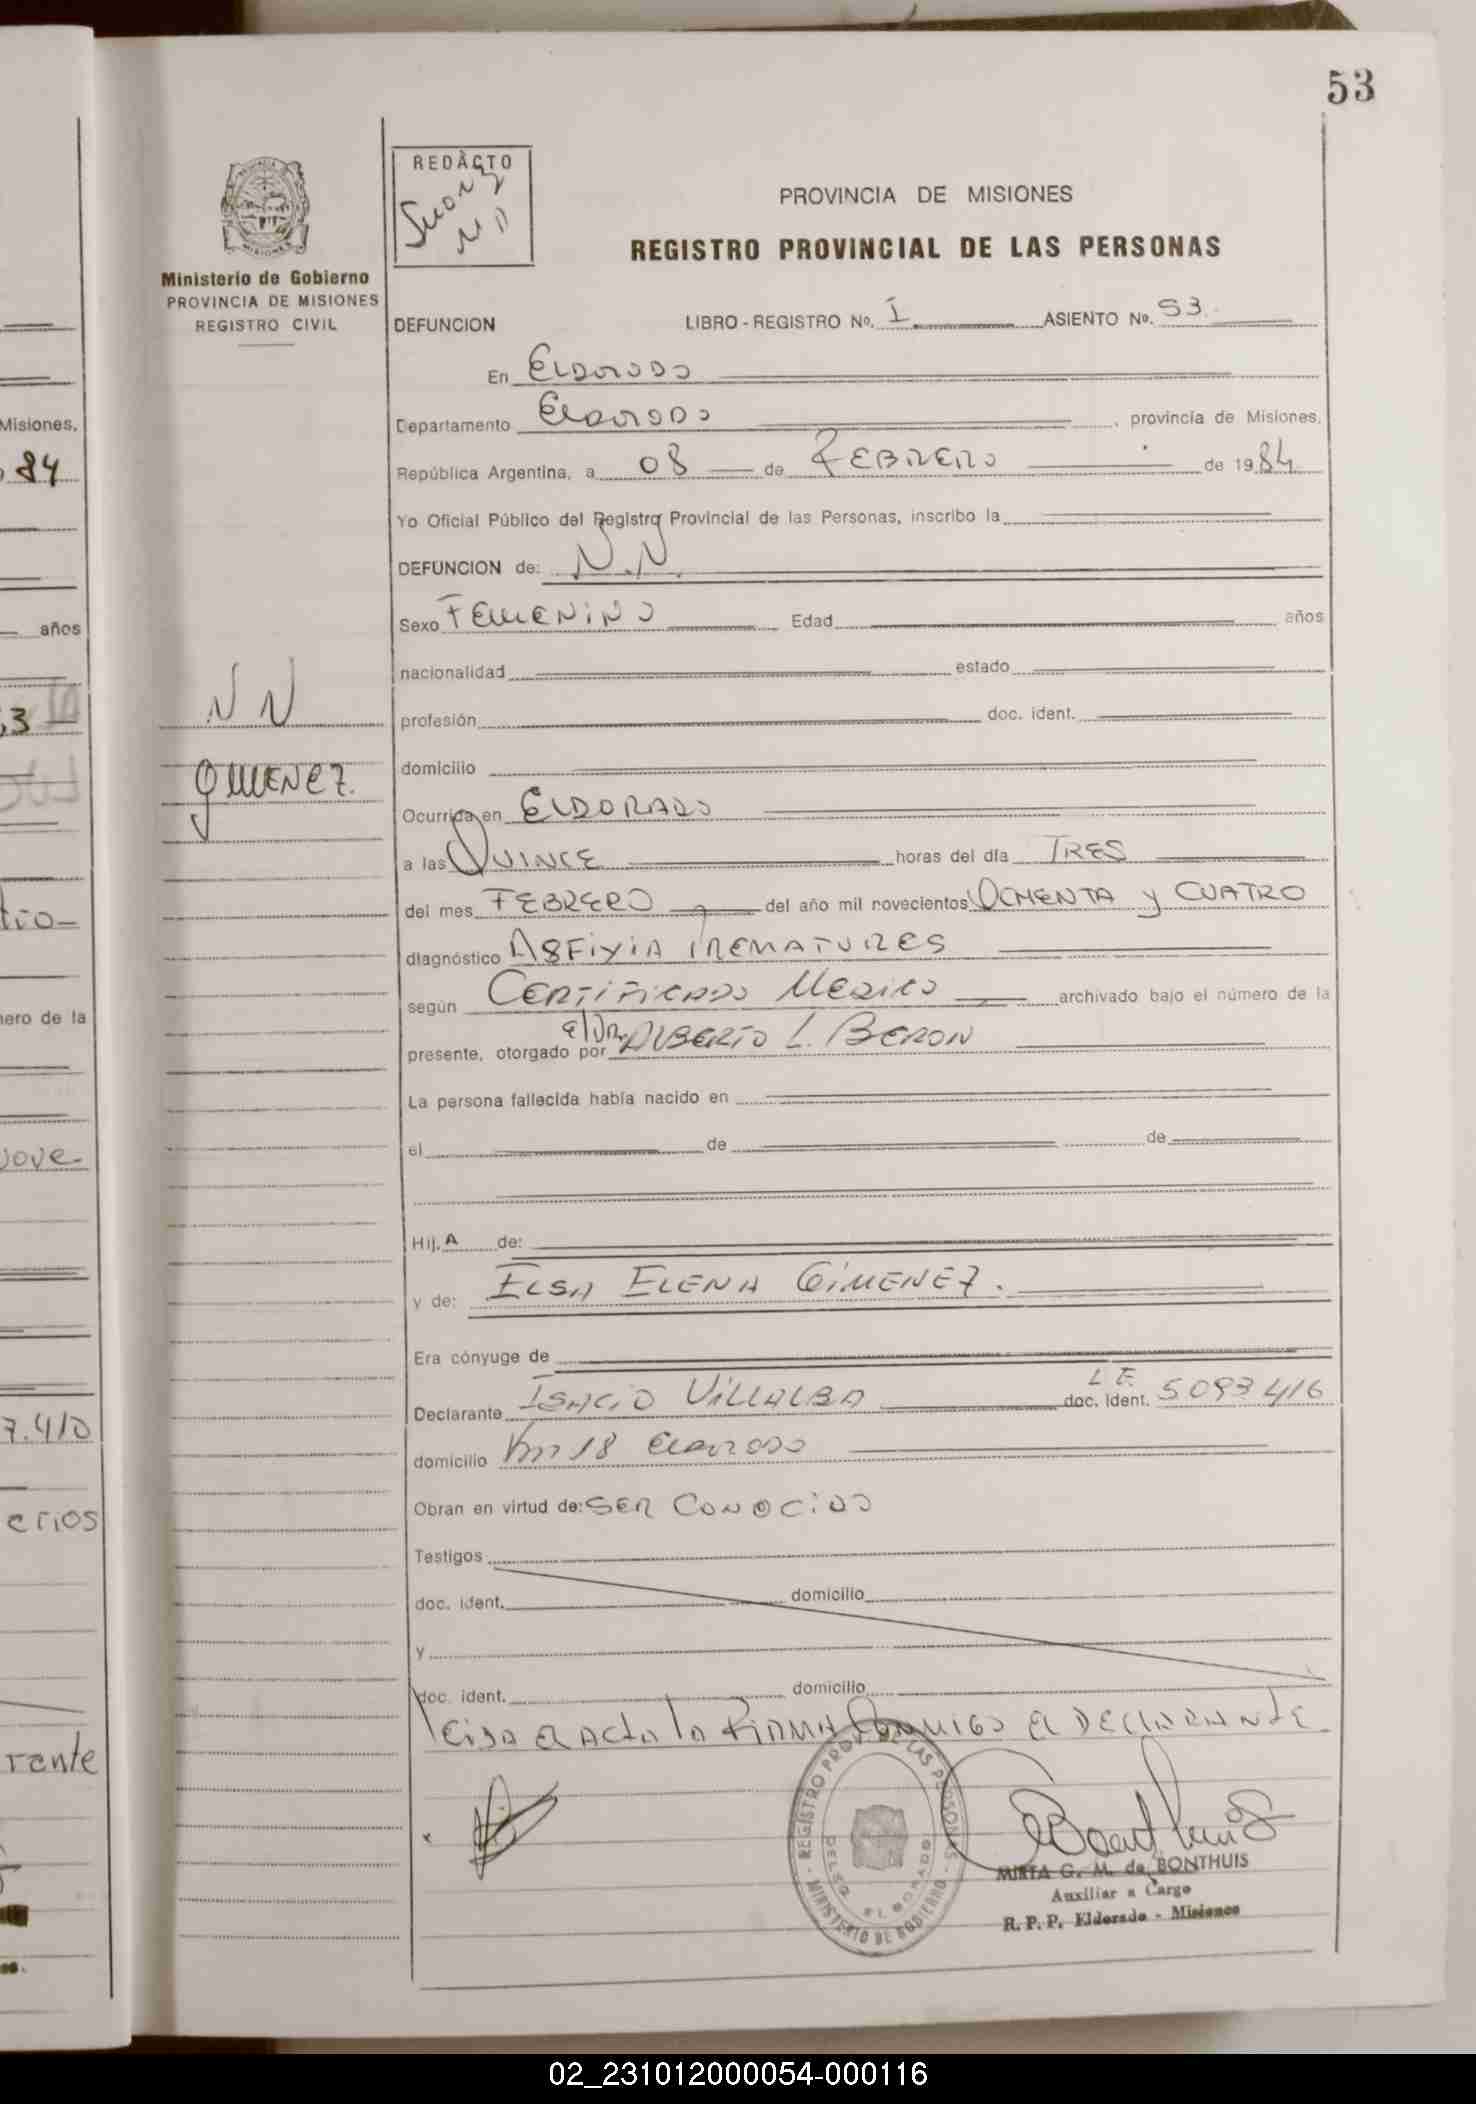 53
REDACTO
PROVINCIA DE MISIONES
REGISTRO PROVINCIAL DE LAS PERSONAS
Ministerio de Gobierno
PROVINCIA DE MISIONES
REGISTRO CIVIL
DEFUNCION LIBRO - REGISTRO No. I ASIENTO No. 53
En ELDORADO
Departamento ELDORADO, provincia de Misiones,
República Argentina, a 08 de FEBRERO de 1984
Yo Oficial Público del Registro Provincial de las Personas, inscribo la
DEFUNCION de: N.N.
Sexo FEMENINO Edad años
nacionalidad estado
N N
profesión doc. ident.
GIMENEZ.
domicilio
Ocurrida en ELDORADO
a las QUINCE horas del día TRES
del mes FEBRERO del año mil novecientos OCHENTA y CUATRO
diagnóstico ASFIXIA PREMATURES
según CERTIFICADO MEDICO archivado bajo el número de la
presente, otorgado por e/DR. ALBERTO L. BERON
La persona fallecida había nacido en
el de de
Hij A de:
y de: ELSA ELENA GIMENEZ.
Era cónyuge de
Declarante IGNACIO VILLALBA doc. ident. L E. 5093416
domicilio Km 18 ELDORADO
Obran en virtud de: SER CONOCIDO
Testigos
doc. ident. domicilio
y
doc. ident. domicilio
leida el acta la FIRMA CONMIGO el DECLARANTE
x
REGISTRO PROV. DE LAS PERSONAS - MINISTERIO DE GOBIERNO
DELEG. ELDORADO
MIRTA G. M. de BONTHUIS
Auxiliar a Cargo
R. P. P. Eldorado - Misiones
Misiones,
84
años
53
ero de la
7.410
erios
rante
02_231012000054-000116